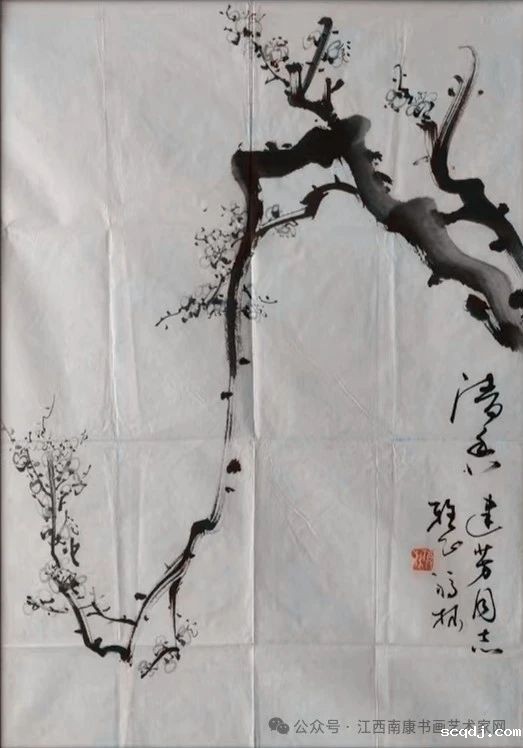 清香
建芳同志
雅正
福林
公众号·江西南康书画艺术家网
scqdj.com